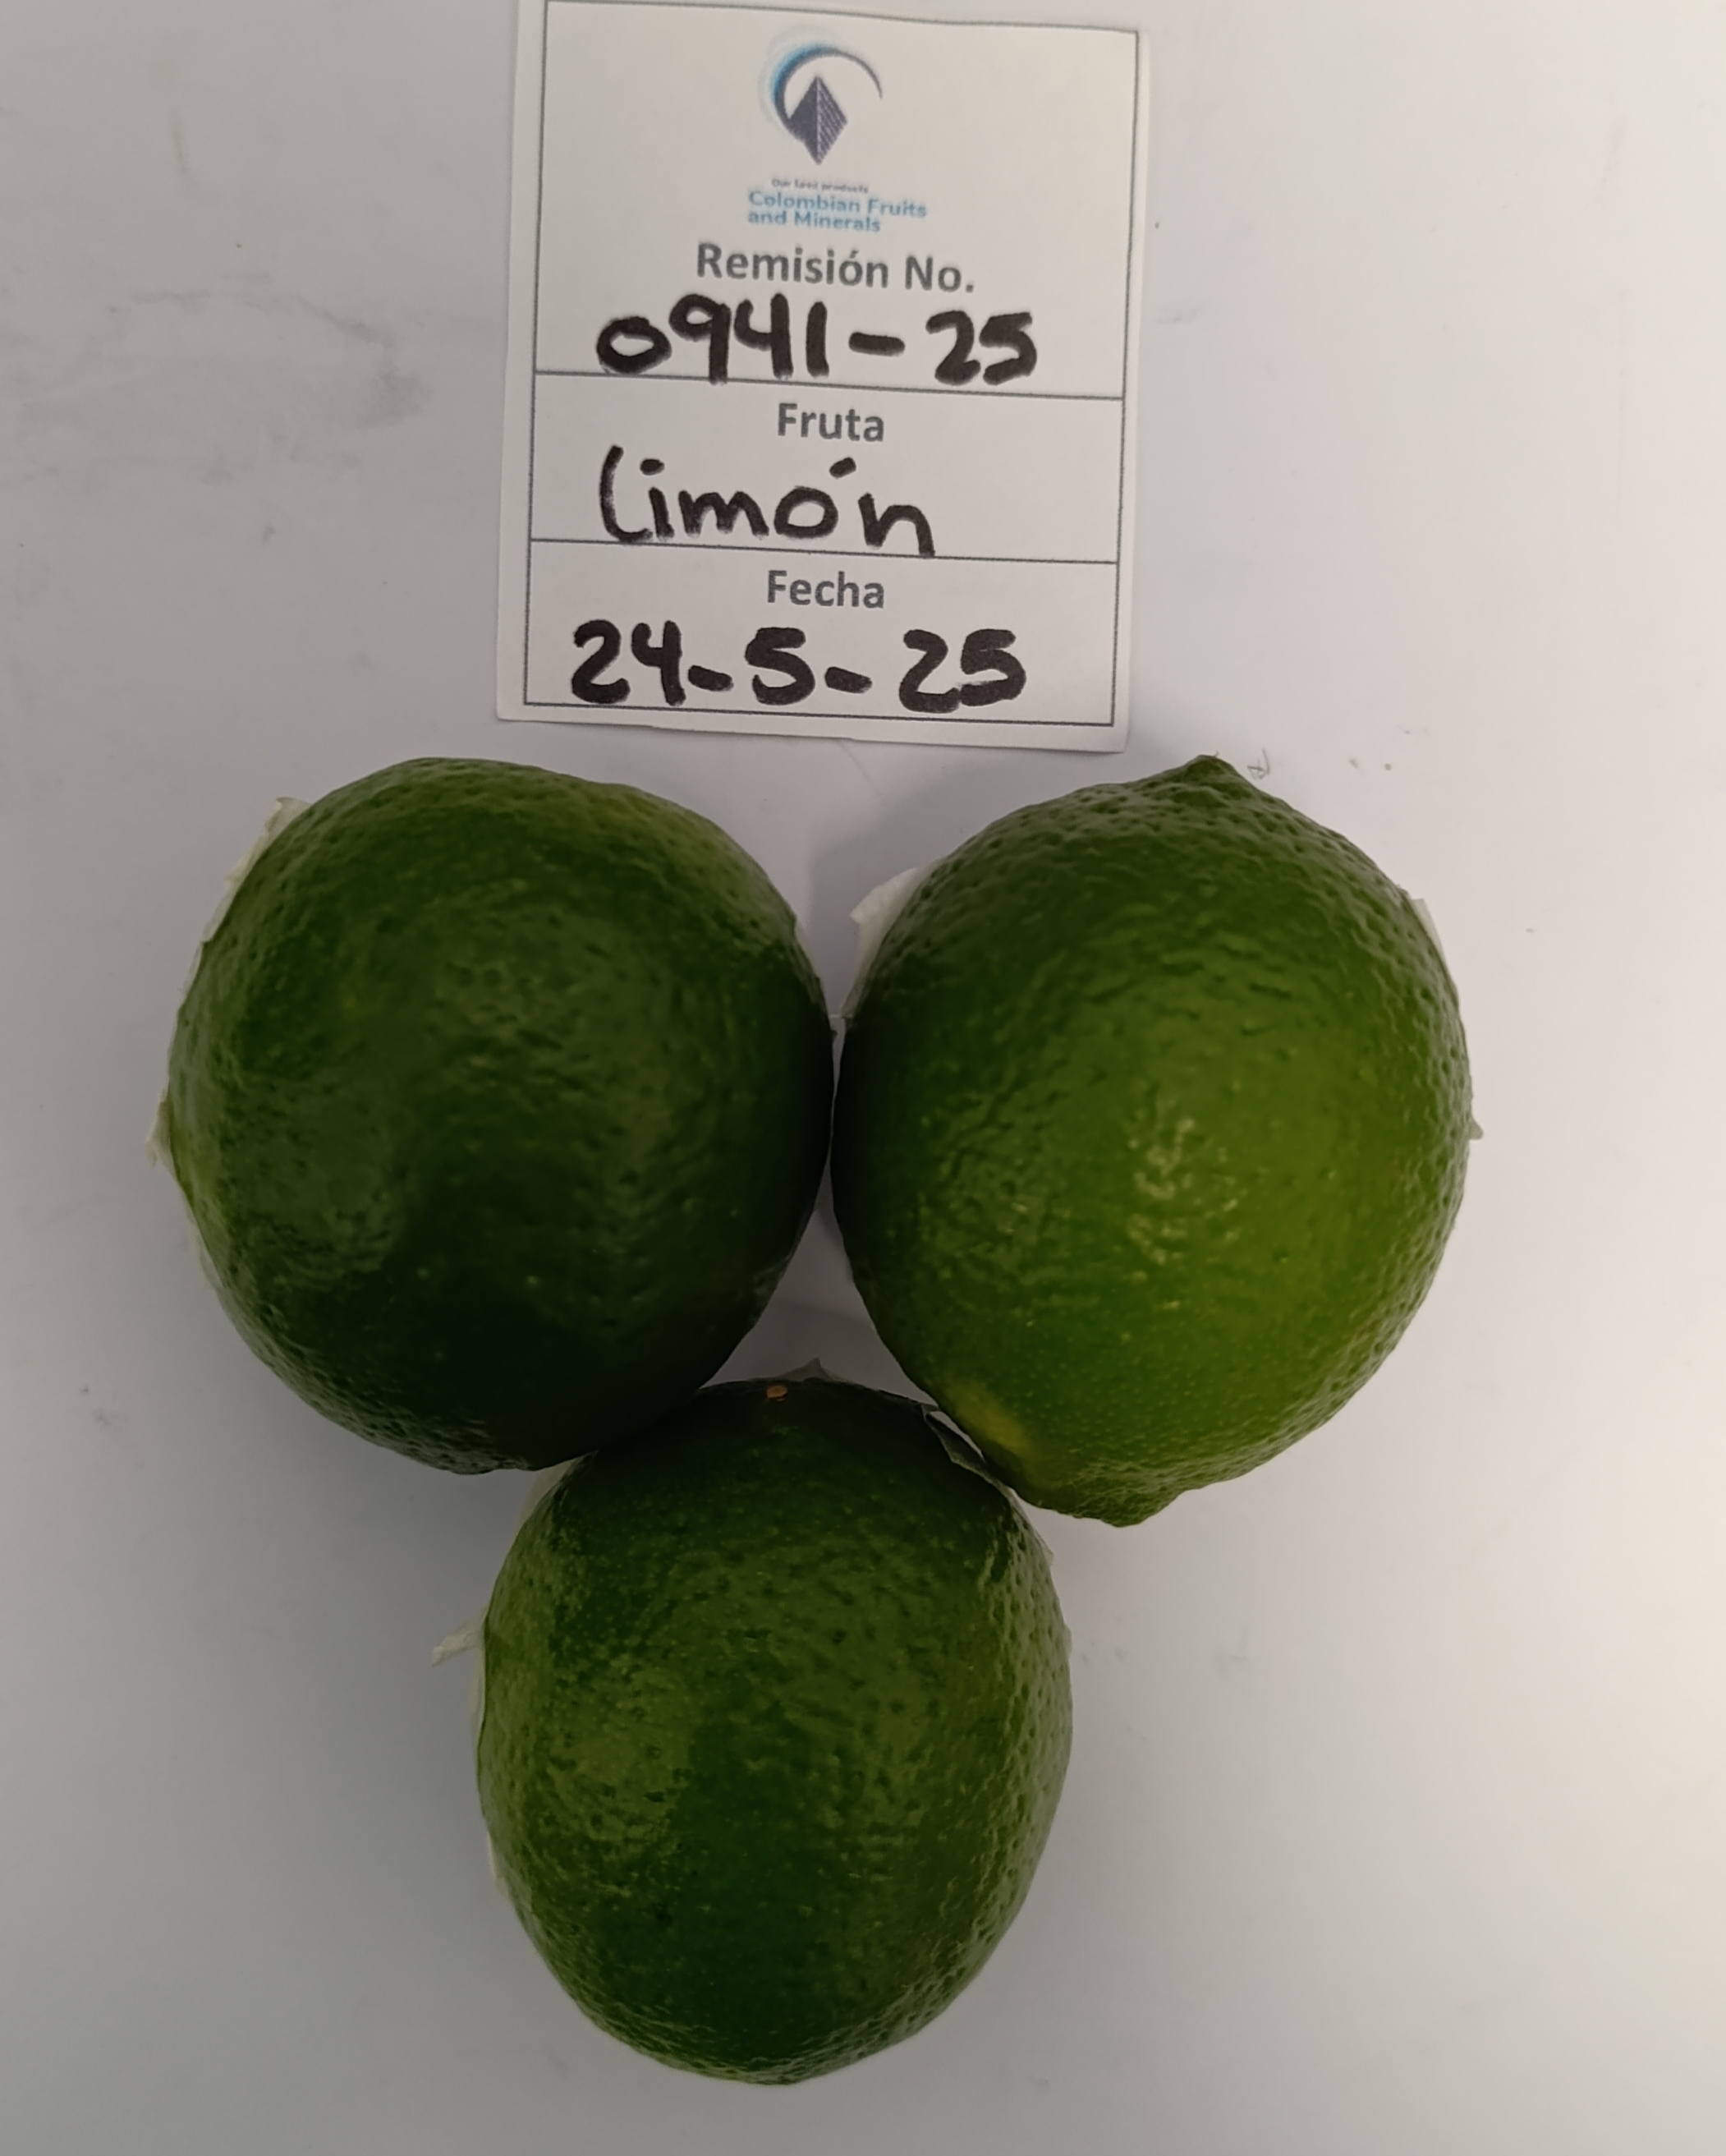 Our land products
Colombian Fruits
and Minerals
Remisión No.
0941-25
Fruta
Limón
Fecha
24-5-25